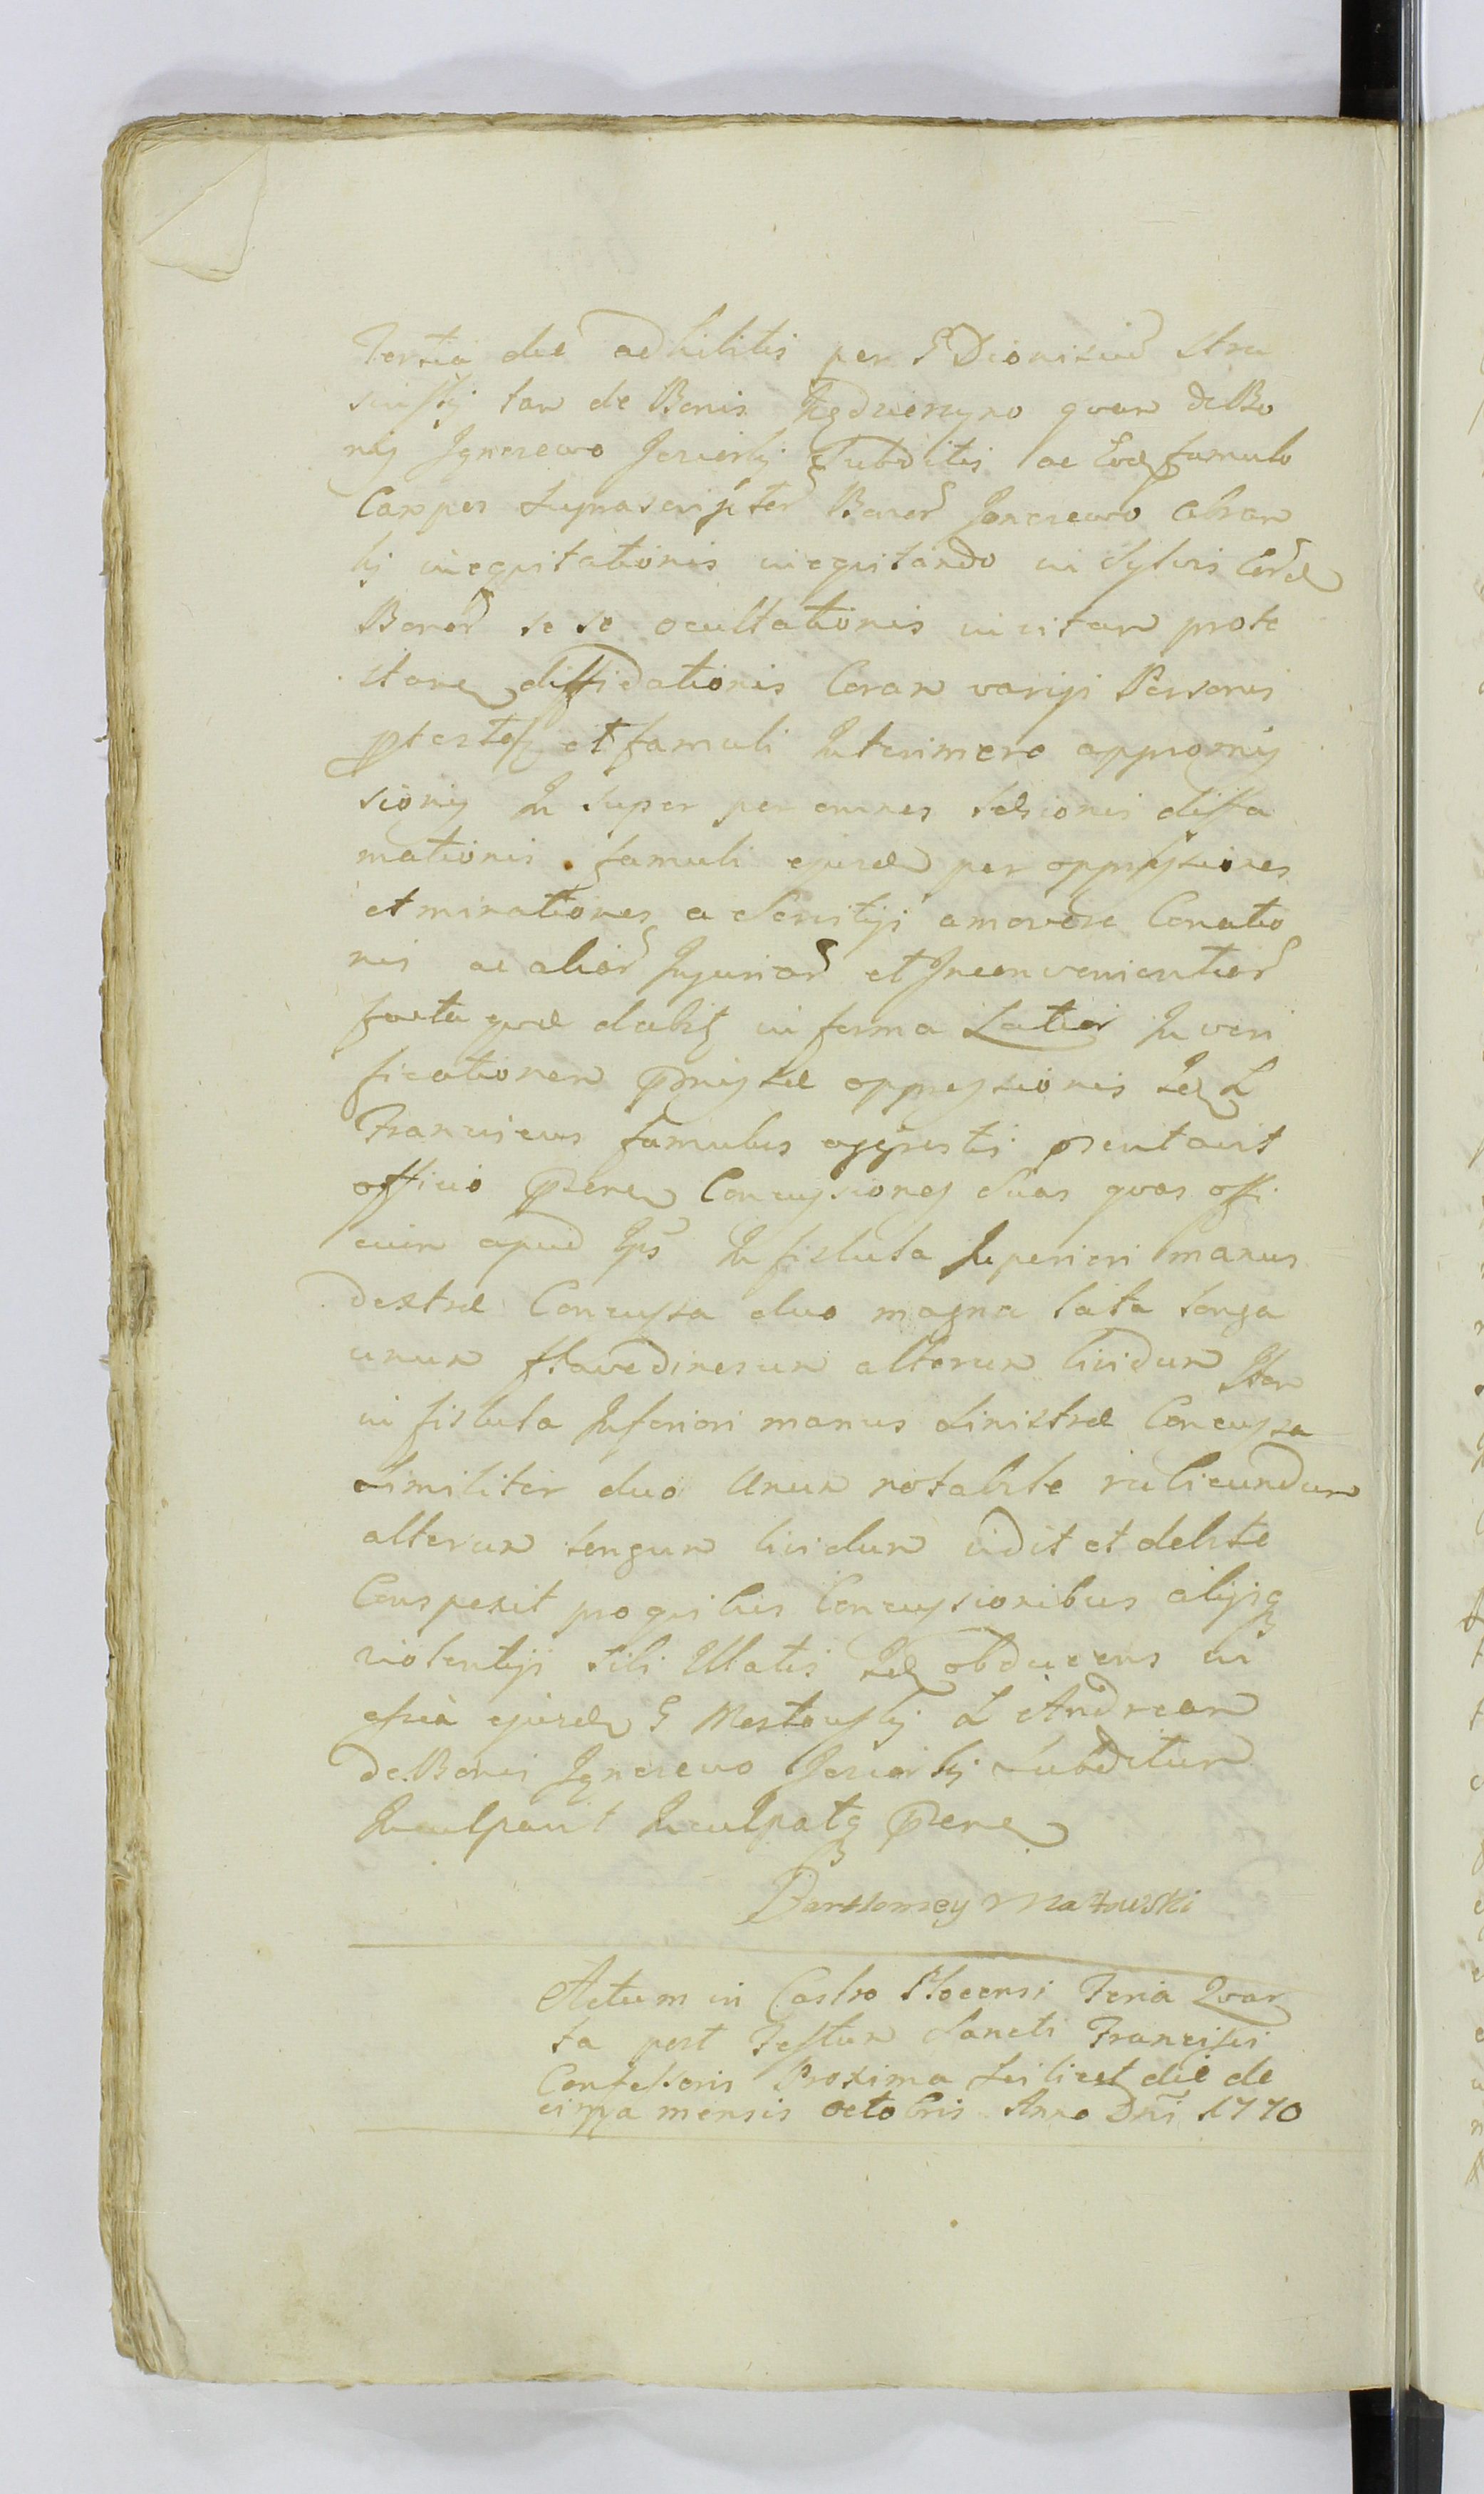 Tertia die adhibitis per G Dionisiu Stru
sinskij tam de Bonis quam de Bo
nis Jgnacewo Jesiorkij Subditis ac Eod famulo
Casper suprascriptor Bonor Jgnacewo
inequitationis inequitando in Sylvis Eord
Bonor se se ocultationis in vitam prote
stane diffidationis Coram varijs Personis
ptestis et famuli Interimere appromis
sionis In super per omnes diffa
mationis famuli ejusde per oppressiones
et minationes a Servitijs amovere Conatio
nis ac alior Injuriar et Inconvenientior
facta quae dabit in forma Latior In veri
ficationem pmissae oppressionis Id L
Franciscus famulus agrestis psentavit
officio Gnere Concussiones Suas quas offi
cium apud Ips In fistula superiori manus
dextrae Concussa duo magna lata longa
unum flavedinosum alterum lividum Item
in fistula Inferiori manus sinistrae Concussa
similiter duo Unum notabile rubicundum
alterum longum lividum vidit et debite
Conspexit pro quibus Concussionibus alijsq
violentijs sibi Illatis Id obducens in
ejusde G L Andream
de Bonis Jgnacewo Jesiorkij subditum
Inculpavit Inculpatq Gnere
Bartlomiey Matowski
Actum in Castro Plocensi Feria Quar
ta post Festum Sancti Francisci
Confessoris Proxima scilicet die de
cima mensis octobris Anno Dni 1770